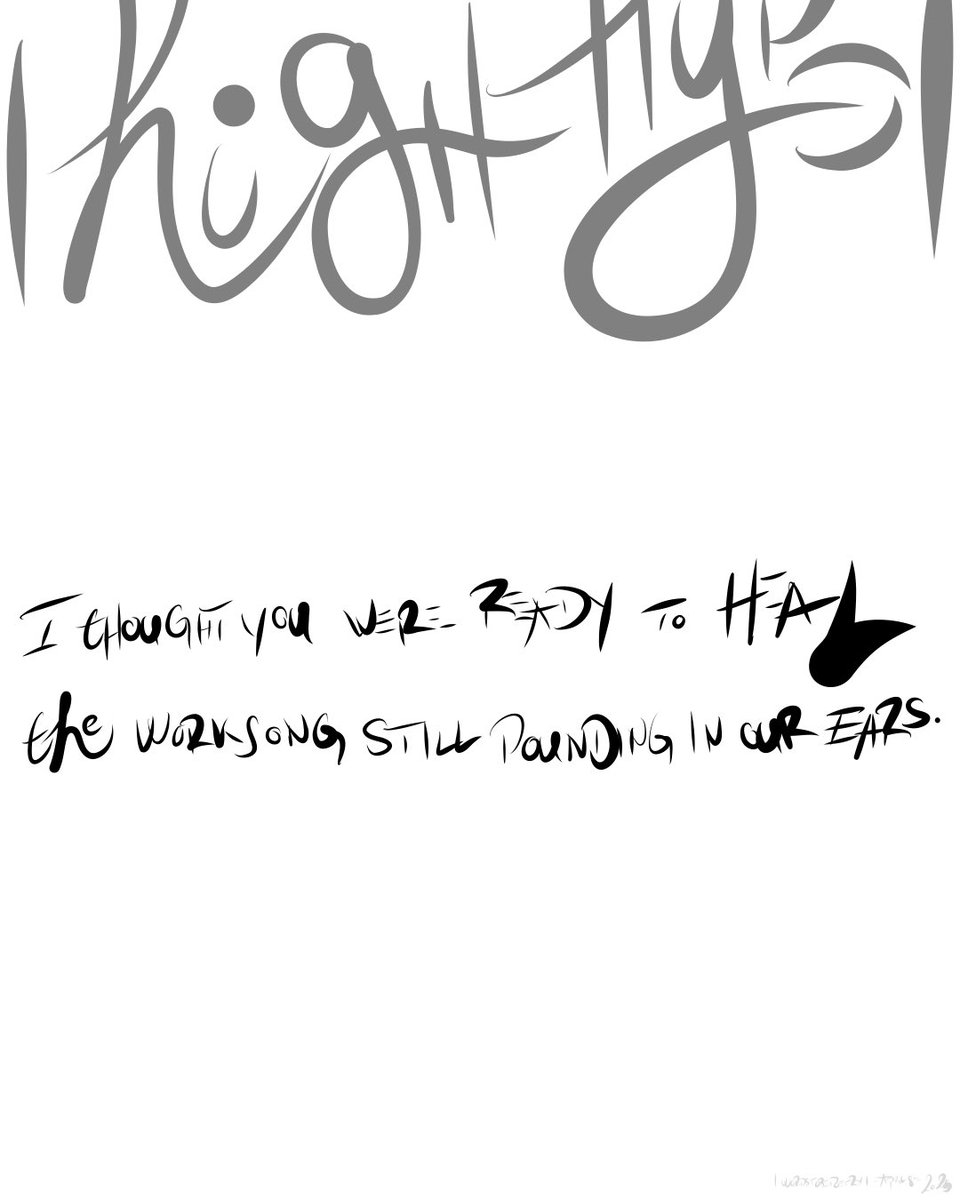 high
I THOUGHT YOU WERE READY TO HEAL
the WORKSONG STILL POUNDING IN OUR EARS.